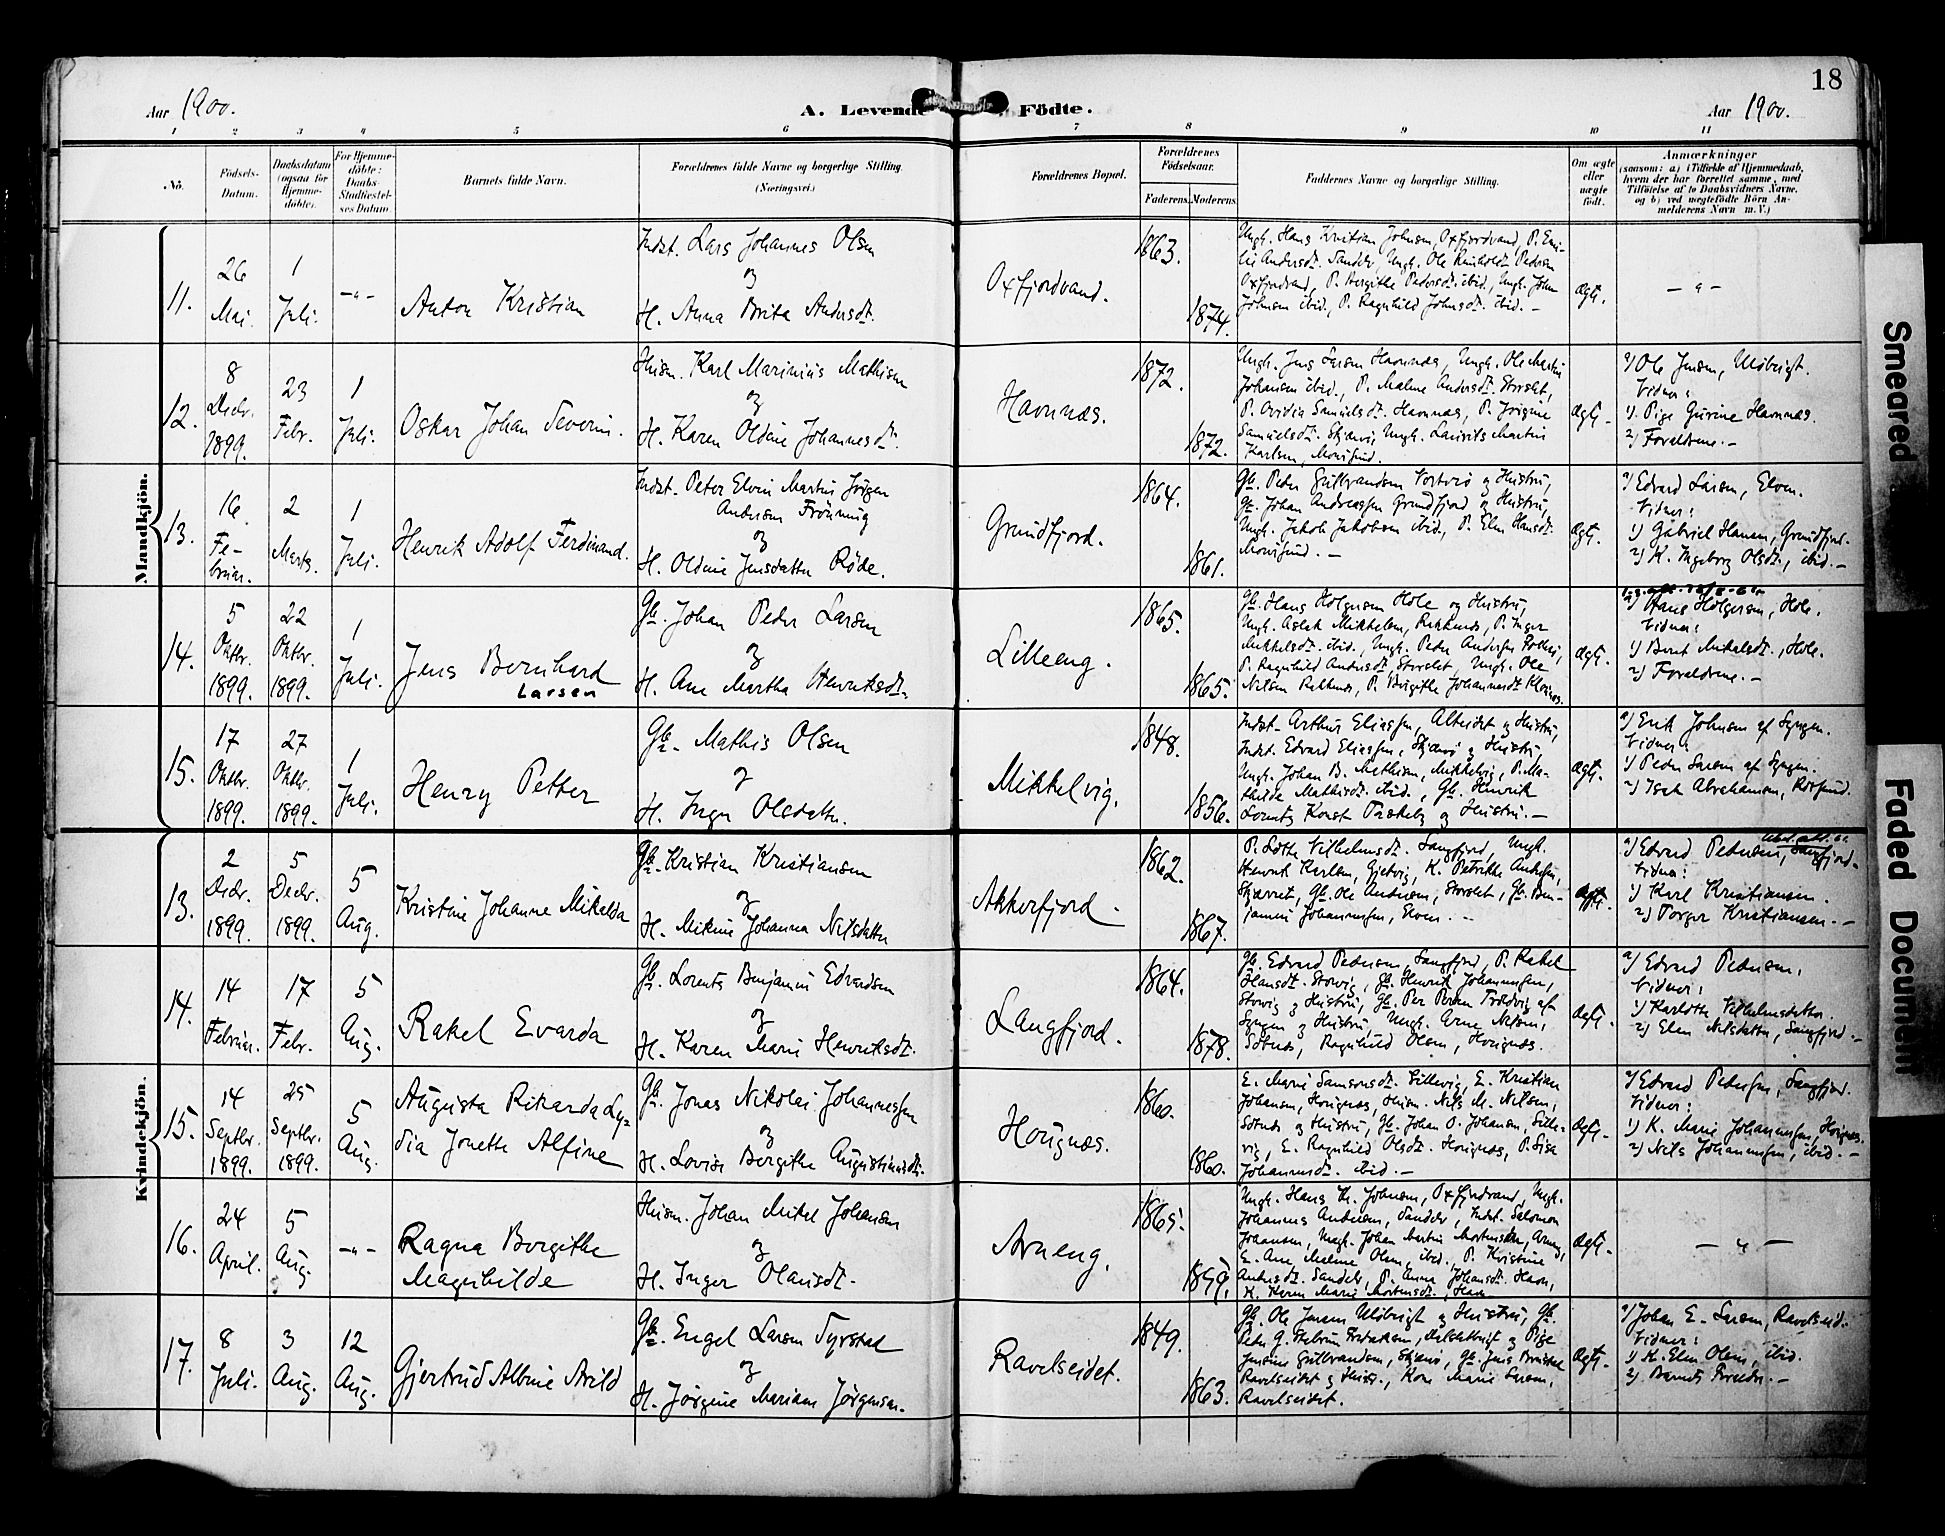 18
Aar 1900.
A. Levende Födte.
Aar 1900.
1 2 3 4 5 6 7 8 9 10 11
No.
Födsels-
Datum.
Daabsdatum
(ogsaa for
Hjemme-
döbte).
For Hjemme-
döbte:
Daabs-
Stadfæstel-
ses Datum.
Barnets fulde Navn.
Forældrenes fulde Navne og borgerlige Stilling.
(Næringsvei.)
Forældrenes Bopæl.
Forældrenes
Födselsaar.
Faderens.
Moderens.
Faddernes Navne og borgerlige Stilling.
Om ægte
eller
uægte
födt.
Anmærkninger
(saasom: a) i Tilfælde af Hjemmedaab,
hvem der har forrettet samme, med
Tilföielse af to Daabsvidners Navne,
og b) ved uægtefödte Börn An-
melderens Navn m. V.)
Mandkjön.
11.
26
Mai.
1
Juli.
-„-
Anton Kristian
Indst. Lars Johannes Olsen
og
H. Anna Brita Andersdt.
Oxfjordvand.
1863.
1874.
Ungk. Hans Kristian Johnsen, Oxfjordvand, P. Emi-
lie Andersdt. Sandør, Ungk. Ole Reinholdt Pedersen
Oxfjordvand, P. Bergithe Pedersdt. ibid., Ungk. John
Johnsen ibid., P. Ragnhild Johnsdt. ibid. -
Ægte.
- „ -
12.
8
Decbr.
1899.
23
Febr.
1
Juli.
Oskar Johan Severin.
Husm. Karl Marinius Mathisen
og
H. Karen Oldine Johannesdt.
Havnnæs.
1872.
1872.
Ungk. Jens Larsen Havnnæs, Ungk. Ole Martin
Johansen ibid., P. Malene Andersdt. Storslet,
P. Ovidia Samuelsdt. Havnnæs, P. Jørgine
Samuelsdt. Skjærvø, Ungk. Laurits Martin
Karlsen,
Ægte.
a) Ole Jensen,
Vidner:
1) Pige Gurine Havnnæs.
2) Forældrene. -
13.
16.
Fe-
bruar.
2
Marts.
1
Juli.
Henrik Adolf Ferdinand.
Indst. Peter Elvin Martin Jørgen
Andersen Frönning
og
H. Oldine Jensdatter Røde.
Grundfjord.
1864.
1861.
Gb. Peder Gulbrandsen Vorterø og Hustru,
Gb. Johan Andreassen Grundfjord og Hustru,
Ungk. Jakob Jakobsen ibid., P. Elen Hansdt.
Ægte.
a) Edvard Larsen, Elven.
Vidner:
1) Gabriel Hansen, Grundfjord.
2) K. Ingeborg Olsdt., ibid. -
14.
5
Oktbr.
1899.
22
Oktbr.
1899.
1
Juli.
Jens Bernhard
Larsen
Gb. Johan Peder Larsen
og
H. Ane Martha Henriksdt.
Lilleeng.
1865.
1865.
Gb. Hans Holgersen Hole og Hustru,
Ungk. Aslak Mikkelsen, Rakkenes, P. Inger
Mikkelsdt. ibid., Ungk. Peder Andersen
P. Ragnhild Andersdt. Storslet, Ungk. Ole
Nilsen Rakkenes, P. Birgithe Johannesdt.
Ægte.
a) Hans Holgersen, Hole.
Vidner:
1) Berit Mikalsdt., Hole.
2) Forældrene. -
15.
17
Oktbr.
1899.
27
Oktbr.
1899.
1
Juli.
Henry Petter
Gb. Mathis Olsen
og
H. Inger Olsdatter.
Mikkelvig.
1848.
1856.
Indst. Arthur Eliassen, Alteidet og Hustru,
Indst. Edvard Eliassen, Skjærvø og Hustru,
Ungk. Johan B. Mathisen, Mikkelvig, P. Ma-
thilde Mathisdt. ibid., Gb. Henrik
Lorentz Kona og Hustru. -
Ægte.
a) Erik Johnsen af Lyngen.
Vidner:
1) Peder Larsen af Lyngen.
2) Isak Abrahamsen,
Kvindekjön.
13.
2
Decbr.
1899.
5
Decbr.
1899.
5
Aug.
Kristine Johanne Mikelda
Gb. Kristian Kristiansen
og
H. Mikine Johanna Nilsdatter
Akkerfjord.
1862.
1867.
P. Lotte Vilhelmsdt. Langfjord, Ungk.
Henrik Karlsen, Gjetvig, K. Petrikke
Gb. Ole Andersen, Storslet, Gb. Ben-
jamin Johannesen, Elven. -
Ægte.
a) Edvard Pedersen, Langfjord.
Vidner:
1) Karl Kristiansen.
2) Torger Kristiansen. -
14.
14
Februar.
17
Febr.
5
Aug.
Rakel Evarda
Gb. Lorents Benjamin Edvardsen
og
H. Karen Marie Henriksdt.
Langfjord.
1864.
1878.
Gb. Edvard Pedersen, Langfjord, P. Rakel
Hansdt. Storvig, Gb. Henrik Johannessen,
Storvig og Hustru, Gb. Per Persen af
Lyngen og Hustru, Ungk. Arne Nilsen,
Sotnes, Ragnhild Olsen, Hougnæs.
Ægte.
a) Edvard Pedersen.
Vidner:
1) Karlotte Vilhelmsdatter.
2) Elen Nilsdatter, Langfjord. -
15.
14
Septbr.
1899.
25
Septbr.
1899.
5
Aug.
Augusta Rikarda Ly-
dia Jonette Alfine
Gb. Jonas Nikolai Johannessen
og
H. Lovise Bergithe Augustinusdt.
Hougnæs.
1860.
1860.
E. Marie Samsonsdt. Lillevig, E. Kristian
Johansen, Hougnæs, Husm. Nils M. Nilsen,
Sotnes og Hustru, Gb. Johan O. Johansen, Lille-
vig, E. Ragnhild Olsdt. Hougnæs, P. Lisa
Johannesdt. ibid. -
Ægte.
a) Edvard Pedersen, Langfjord.
Vidner:
1) K. Marie Johannessen, Hougnæs.
2) Nils Johannessen, ibid. -
16.
24
April.
5
Aug.
-„-
Ragna Bergithe
Magnhilde
Husm. Johan Mikel Johansen
og
H. Inger Olausdt.
Arneng.
1865.
1859.
Ungk. Hans Kr. Johnsen, Oxfjordvand, Ungk.
Johannes Andersen, Sandør, Indst. Salomon
Johansen, Ungk. Johan Martin Mortensen, Arneng,
E. Ane Malene Olsen, ibid., P. Kristine
Andersdt. Sandør, P. Anna Johansdt. Havn,
K. Karen Marie Mortensdt., Havn
Ægte.
- „ -
17.
8
Juli.
3
Aug.
12
Aug.
Gjertrud Albine Arild
Gb. Engel Larsen Tyrstad
og
H. Jørgine Mariane Jørgensen.
Ravelseidet.
1849.
1863.
Gb. Ole Jensen og Hustru, Gb.
Peder G. og Pige
Jensine Gulbrandsen, Skjærvø, Gb. Jens
Ravelseidet og Hustru, Kone Marie Larsen,
Ravelseidet.
Ægte.
a) Johan E. Larsen, Ravelseid.
Vidner:
1) K. Elen Olsen, ibid.
2) Barnets Forældre. -
Smeared
Faded Document